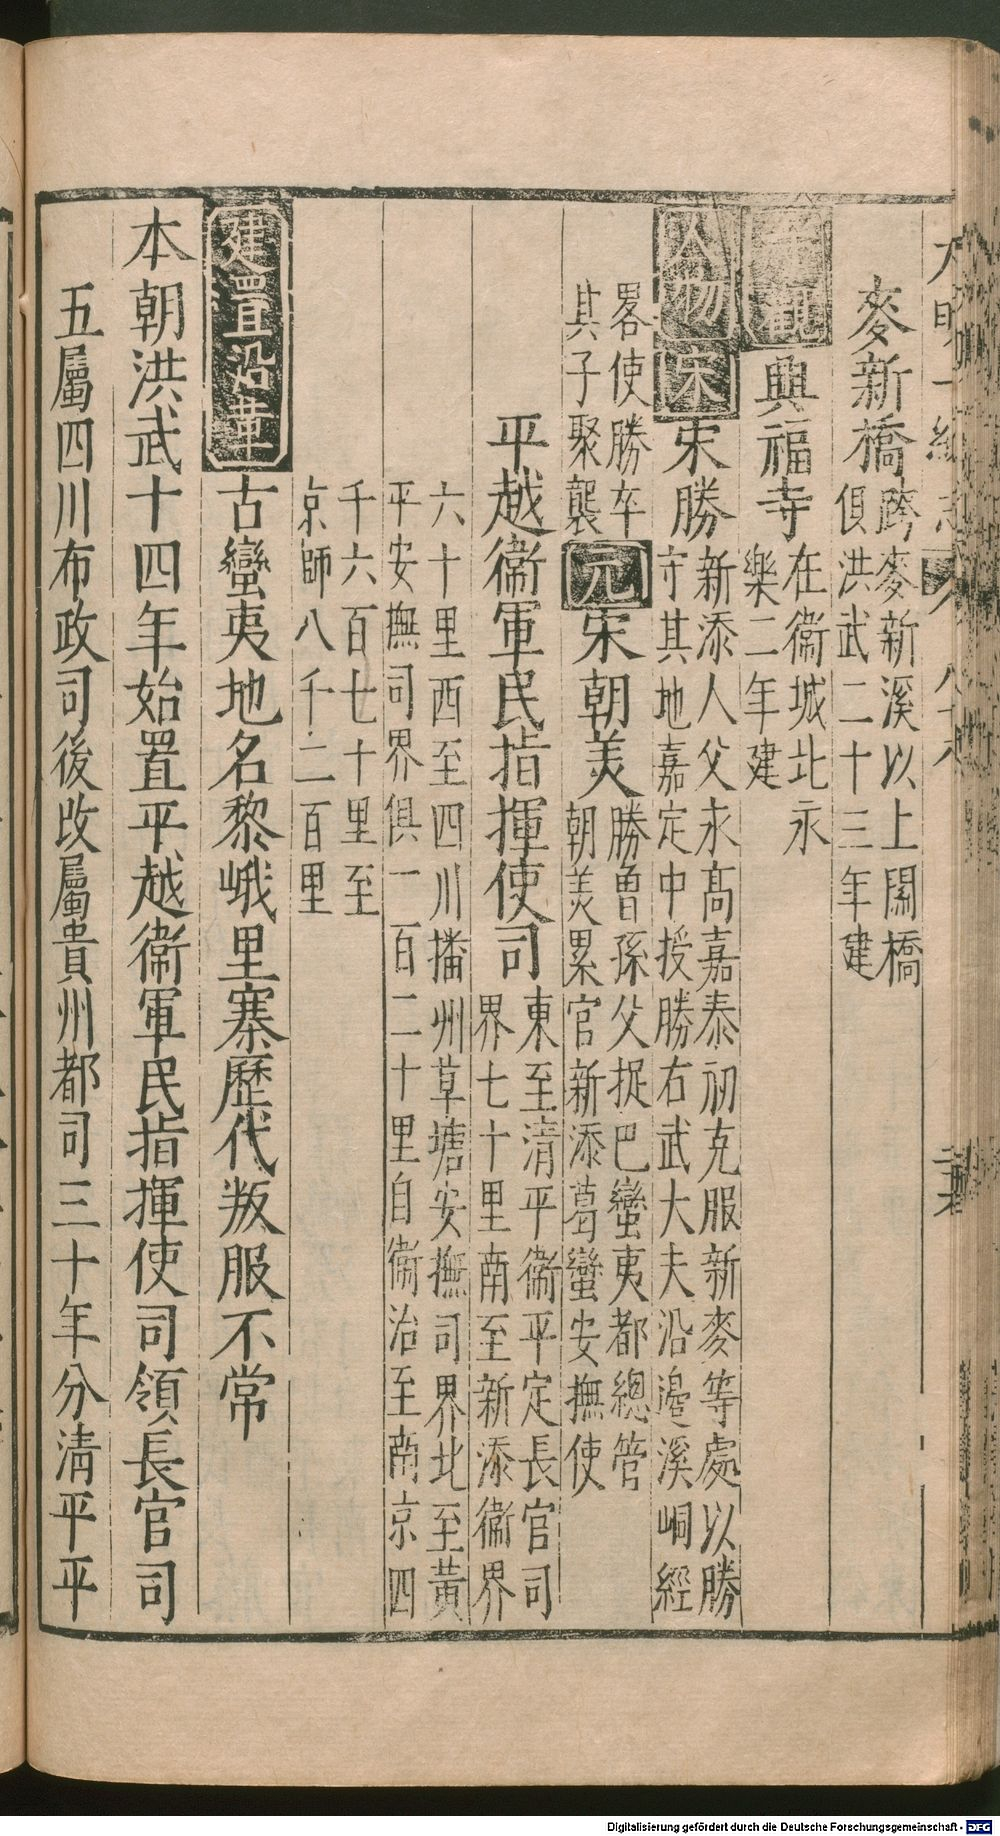 大明一統志 卷八十八 二十六
麥新橋 跨麥新溪以上閣橋
俱洪武二十三年建
寺觀 興福寺 在衞城北永
樂二年建
人物 宋 宋勝 新添人父永高嘉泰初克服新麥等處以勝
守其地嘉定中授勝右武大夫沿邉溪峒經
畧使勝卒
其子聚襲 元 宋朝美 勝曽孫父捉巴蠻夷都總管
朝美累官新添葛蠻安撫使
平越衞軍民指揮使司 東至清平衞平定長官司
界七十里南至新添衞界
六十里西至四川播州草塘安撫司界北至黄
平安撫司界俱一百二十里自衞治至南京四
千六百七十里至
京師八千二百里
建置沿革 古蠻夷地名黎峨里寨歷代叛服不常
本朝洪武十四年始置平越衞軍民指揮使司領長官司
五屬四川布政司後改屬貴州都司三十年分清平平
Digitalisierung gefördert durch die Deutsche Forschungsgemeinschaft - DFG